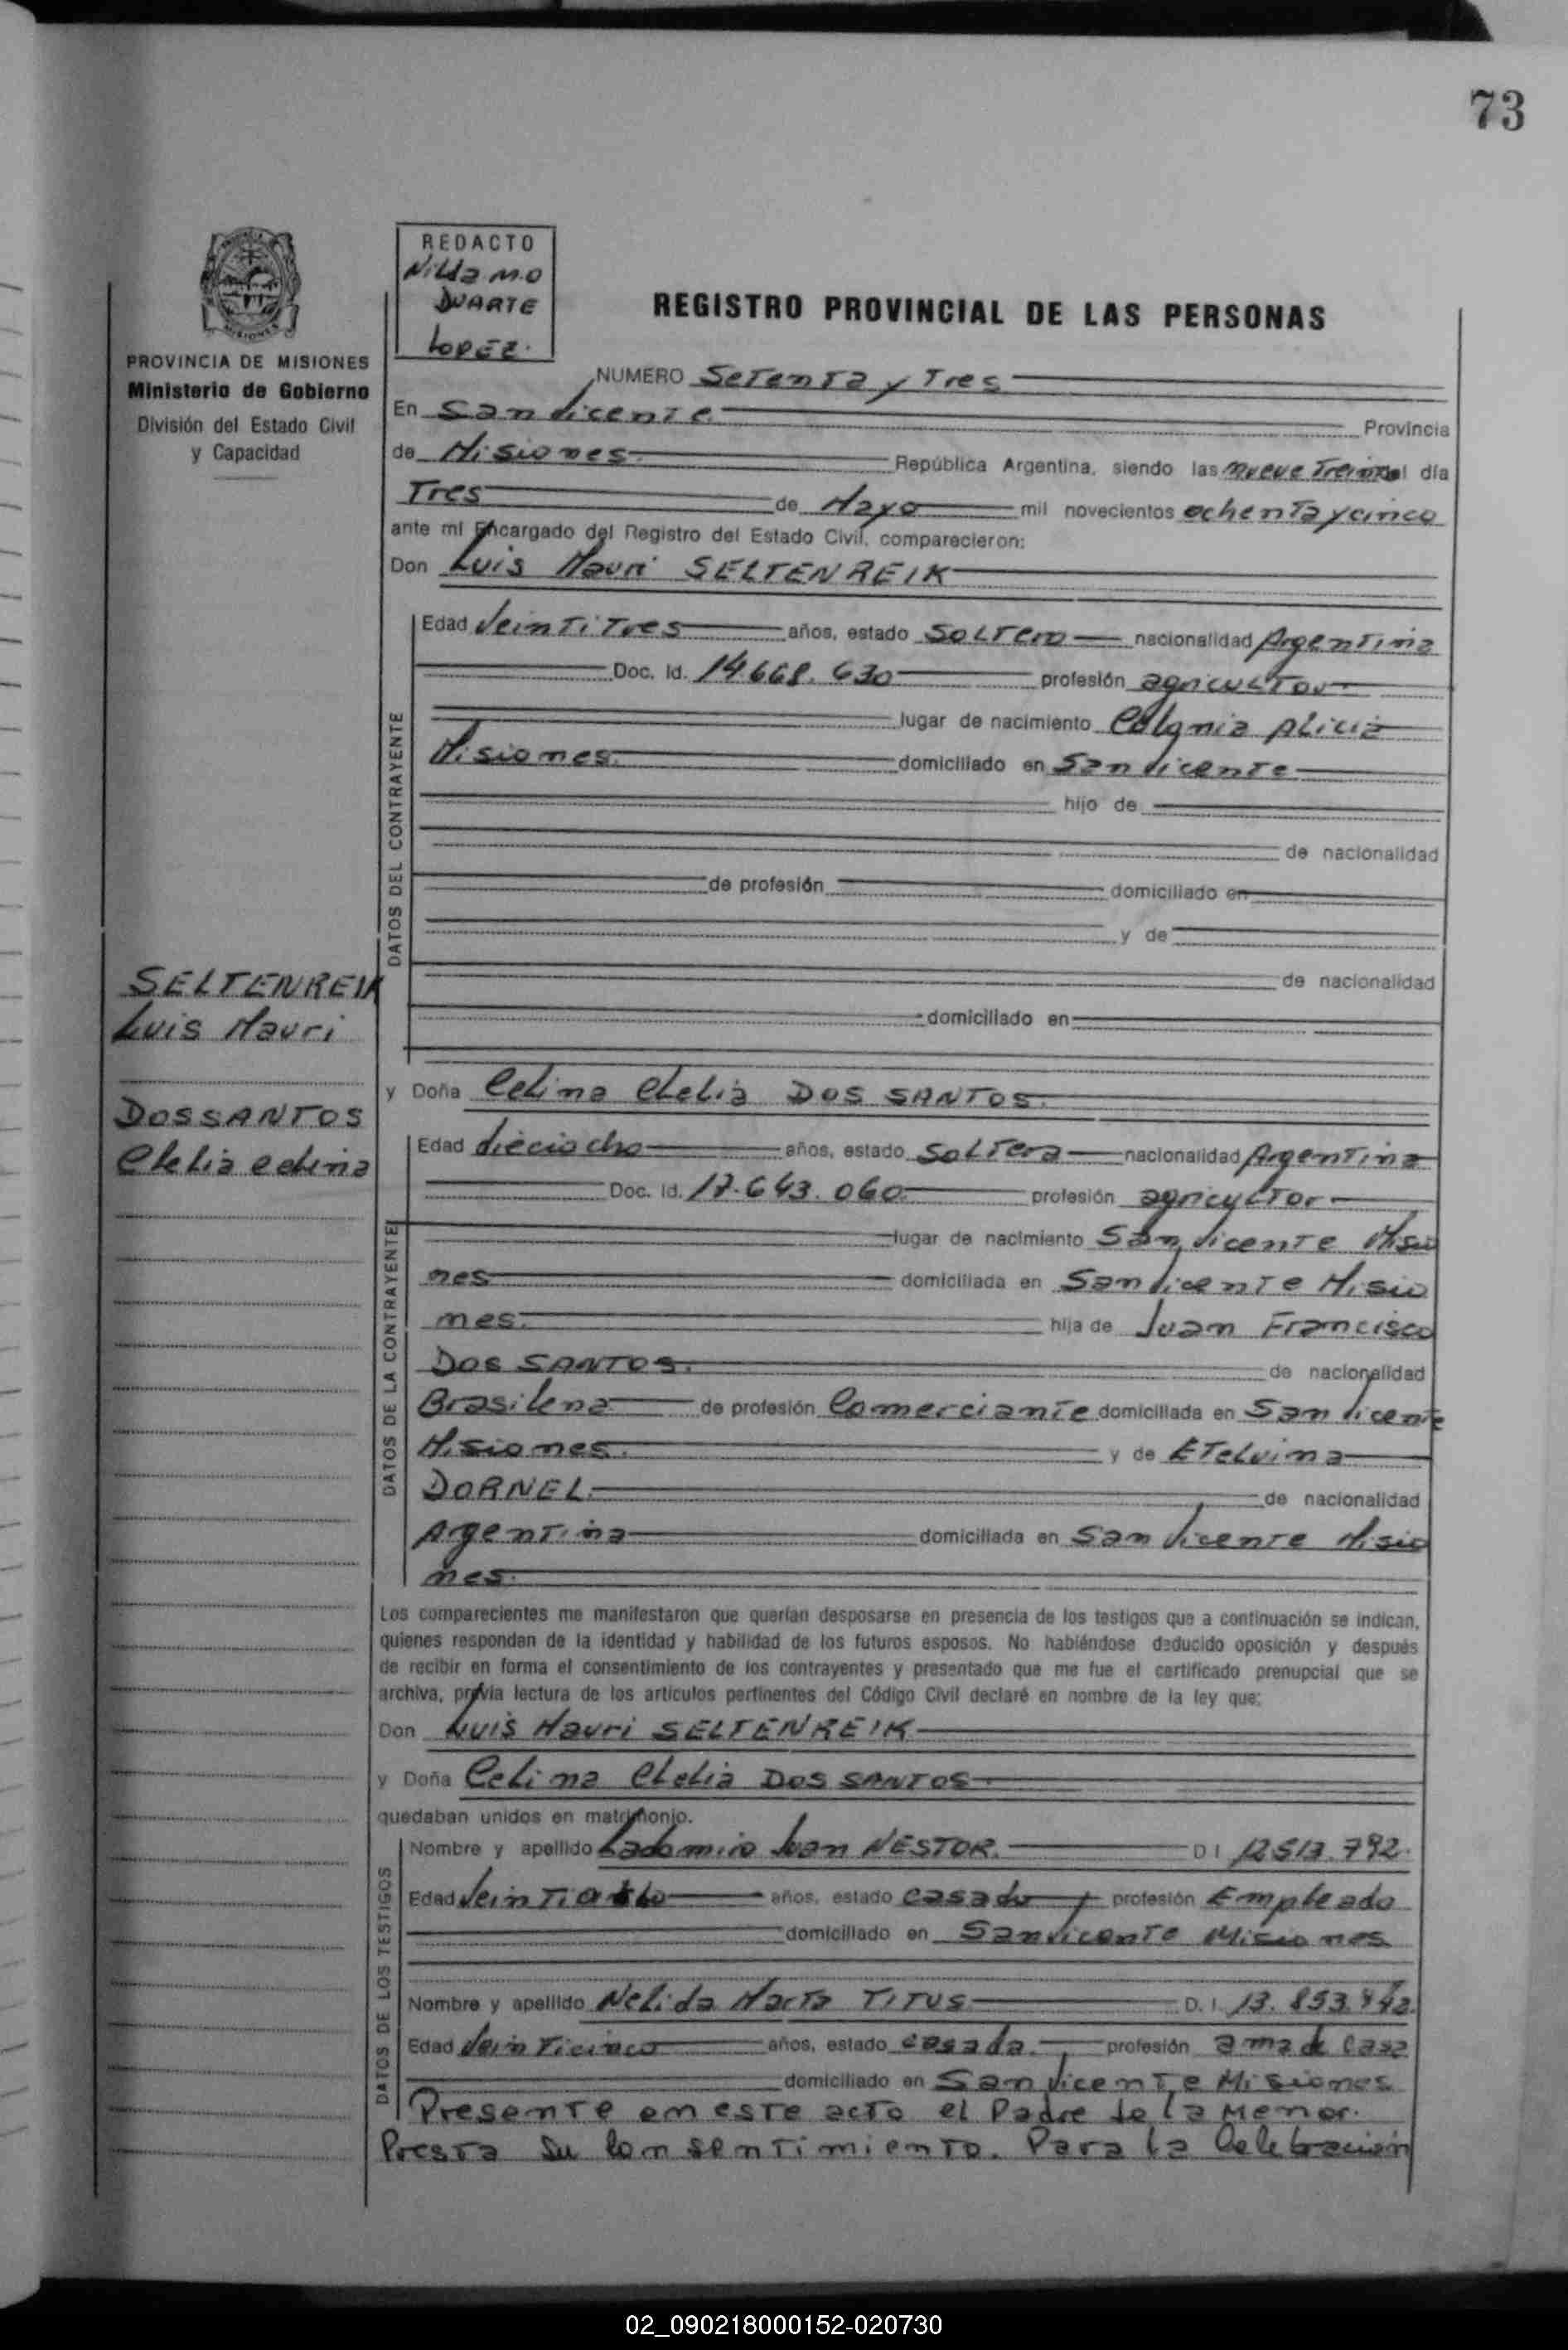 73
REDACTO
Nilda M.O
DUARTE
LOPEZ.
PROVINCIA DE MISIONES
Ministerio de Gobierno
División del Estado Civil
y Capacidad
REGISTRO PROVINCIAL DE LAS PERSONAS
NUMERO Setenta y Tres
En San Vicente Provincia
de Misiones República Argentina, siendo las nueve Treinta del día
Tres de Mayo mil novecientos ochenta y cinco
ante mí Encargado del Registro del Estado Civil, comparecieron:
Don Luis Mauri SELTENREIK
DATOS DEL CONTRAYENTE
Edad VeinTiTres años, estado Soltero nacionalidad Argentina
Doc. Id. 14.668.630 profesión agricultor
lugar de nacimiento Colonia Alicia
Misiones. domiciliado en San Vicente
hijo de
de nacionalidad
de profesión domiciliado en
y de
de nacionalidad
domiciliado en
SELTENREIK
Luis Mauri
DOS SANTOS
Clelia Celina
y Doña Celina Clelia DOS SANTOS.
DATOS DE LA CONTRAYENTE
Edad dieciocho años, estado Soltera nacionalidad Argentina
Doc. Id. 17.643.060. profesión agricultor
lugar de nacimiento San Vicente Misio
nes domiciliada en San Vicente Misio
nes. hija de Juan Francisco
DOS SANTOS. de nacionalidad
Brasilena de profesión Comerciante domiciliada en San Vicente
Misiones. y de ETelvina
DORNEL. de nacionalidad
Argentina domiciliada en San Vicente Misio
nes.
Los comparecientes me manifestaron que querían desposarse en presencia de los testigos que a continuación se indican,
quienes responden de la identidad y habilidad de los futuros esposos. No habiéndose deducido oposición y después
de recibir en forma el consentimiento de los contrayentes y presentado que me fue el certificado prenupcial que se
archiva, previa lectura de los artículos pertinentes del Código Civil declaré en nombre de la ley que:
Don Luis Mauri SELTENREIK
y Doña Celina Clelia DOS SANTOS.
quedaban unidos en matrimonio.
DATOS DE LOS TESTIGOS
Nombre y apellido Juan NESTOR. D I 12.513.792.
Edad años, estado casado profesión Empleado
domiciliado en San Vicente Misiones
Nombre y apellido Nelida Marta TITUS D. I.
Edad VeinTicinco años, estado casada. profesión ama de casa
domiciliado en San Vicente Misiones
Presente en este acto el Padre de la Menor.
Presta Su Consentimiento. Para la Celebración
02_090218000152-020730